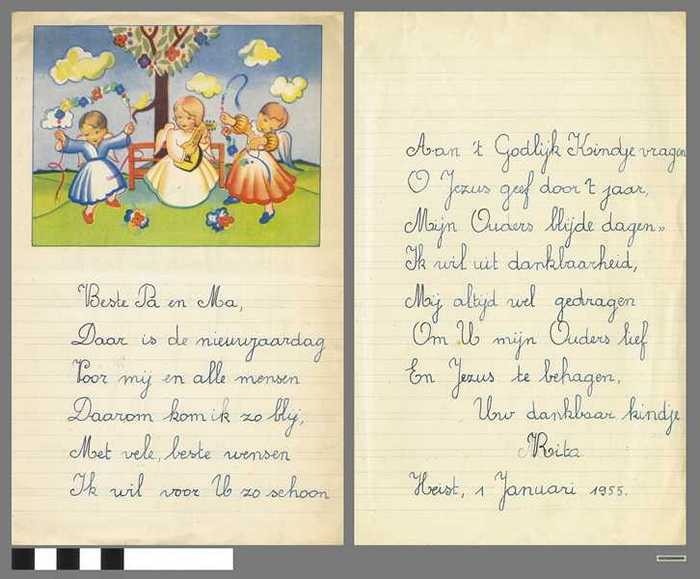 Beste Pa en Ma,
Daar is de nieuwjaardag
Voor mij en alle mensen
Daarom kom ik zo blij,
Met vele, beste wensen
Ik wil voor U zo schoon
Aan 't Godlijk Kindje vragen
O Jezus geef door 't jaar,
Mijn Ouders blijde dagen»
Ik wil uit dankbaarheid,
Mij altijd wel gedragen
Om U mijn Ouders lief
En Jezus te behagen,
Uw dankbaar kindje
Rita
Heist, 1 Januari 1955.